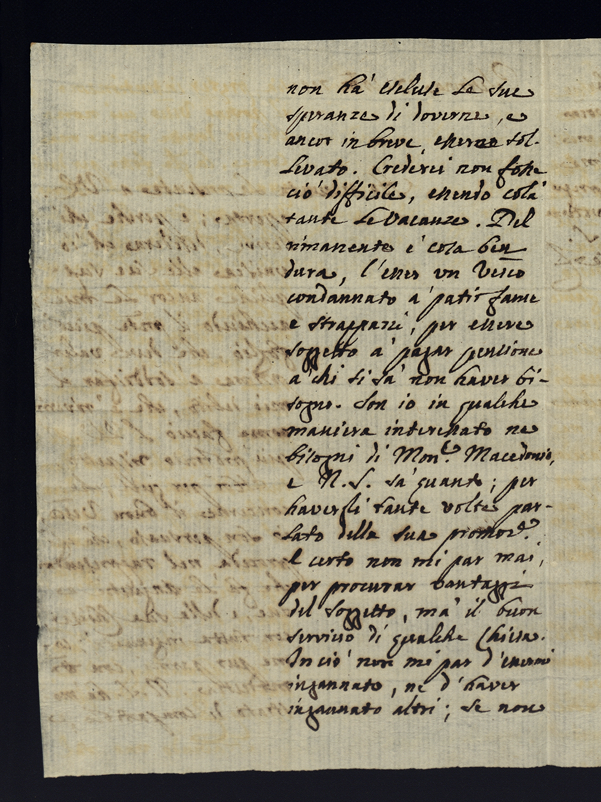 non hà escluse le sue
speranze di doverne, e
ancor in breve, essere sol-
levato. Crederei non fosse
ciò difficile, essendo colà
tante le vacanze. Del
rimanente è cosa ben
dura, l'esser un Vesco
condannato à patir fame
e strappazzi, per essere
soggetto à pagar pensione
à chi si sà non haver bi-
sogno. Son io in qualche
maniera interessato ne
bisogni di Mons.e Macedonio,
e N. S. sà quanto; per
havergli tante volte par-
lato della sua promoz.e
E certo non mi par mai,
per procurar vantaggi
del soggetto, mà il buon
servicio di qualche Chiesa.
In ciò non mi par d'essermi
ingannato, ne d'haver
ingannato altri; se non